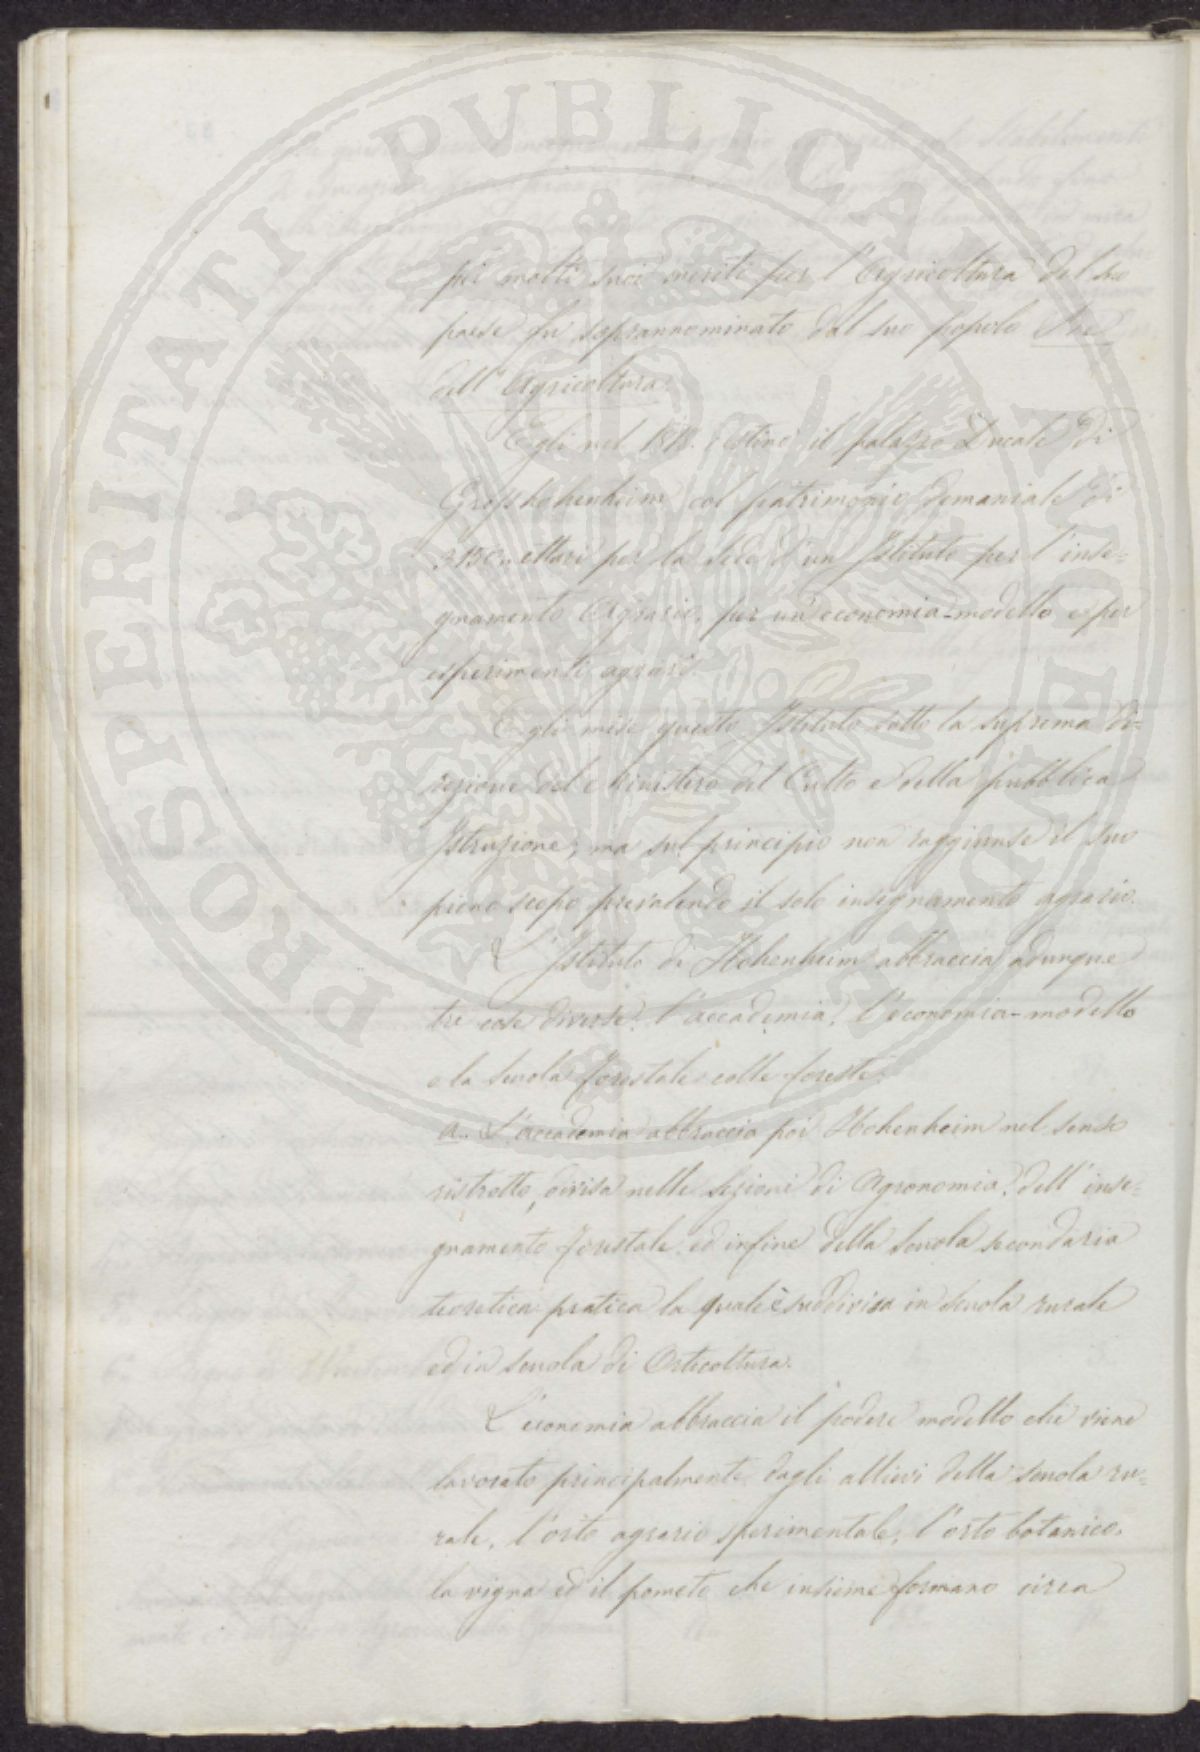 pei molti suoi meriti per l'Agricoltura del suo
paese fu soprannominato dal suo popolo Re
dell'Agricoltura.
Egli nel 1818. destinò il palazzo Ducale di
Grosshohenheim col patrimonio demaniale di
ettari per la sede d'un Istituto per l'inse=
gnamento Agrario, per un'economia-modello e per
esperimenti agrari.
Egli mise questo Istituto sotto la suprema di=
rezione del Ministero del Culto e della pubblica
Istruzione, ma sul principio non raggiunse il suo
pieno scopo prevalendo il solo insegnamento agrario.
L'Istituto di Hohenheim abbraccia adunque
tre cose diverse: l'accademia, l'economia-modello
e la Scuola forestale colle foreste.
a.. L'accademia abbraccia poi Hohenheim nel senso
ristretto, divisa nelle sezioni di Agronomia, dell'inse=
gnamento forestale ed infine della Scuola secondaria
teoretica pratica la quale è suddivisa in Scuola rurale
ed in scuola di Orticoltura.
L'economia abbraccia il podere modello che viene
lavorato principalmente dagli allievi della scuola ru=
rale, l'orto agrario sperimentale, l'orto botanico,
la vigna ed il pometo che insieme formano circa
PROSPERITATI PUBLICAE AUGENDAE